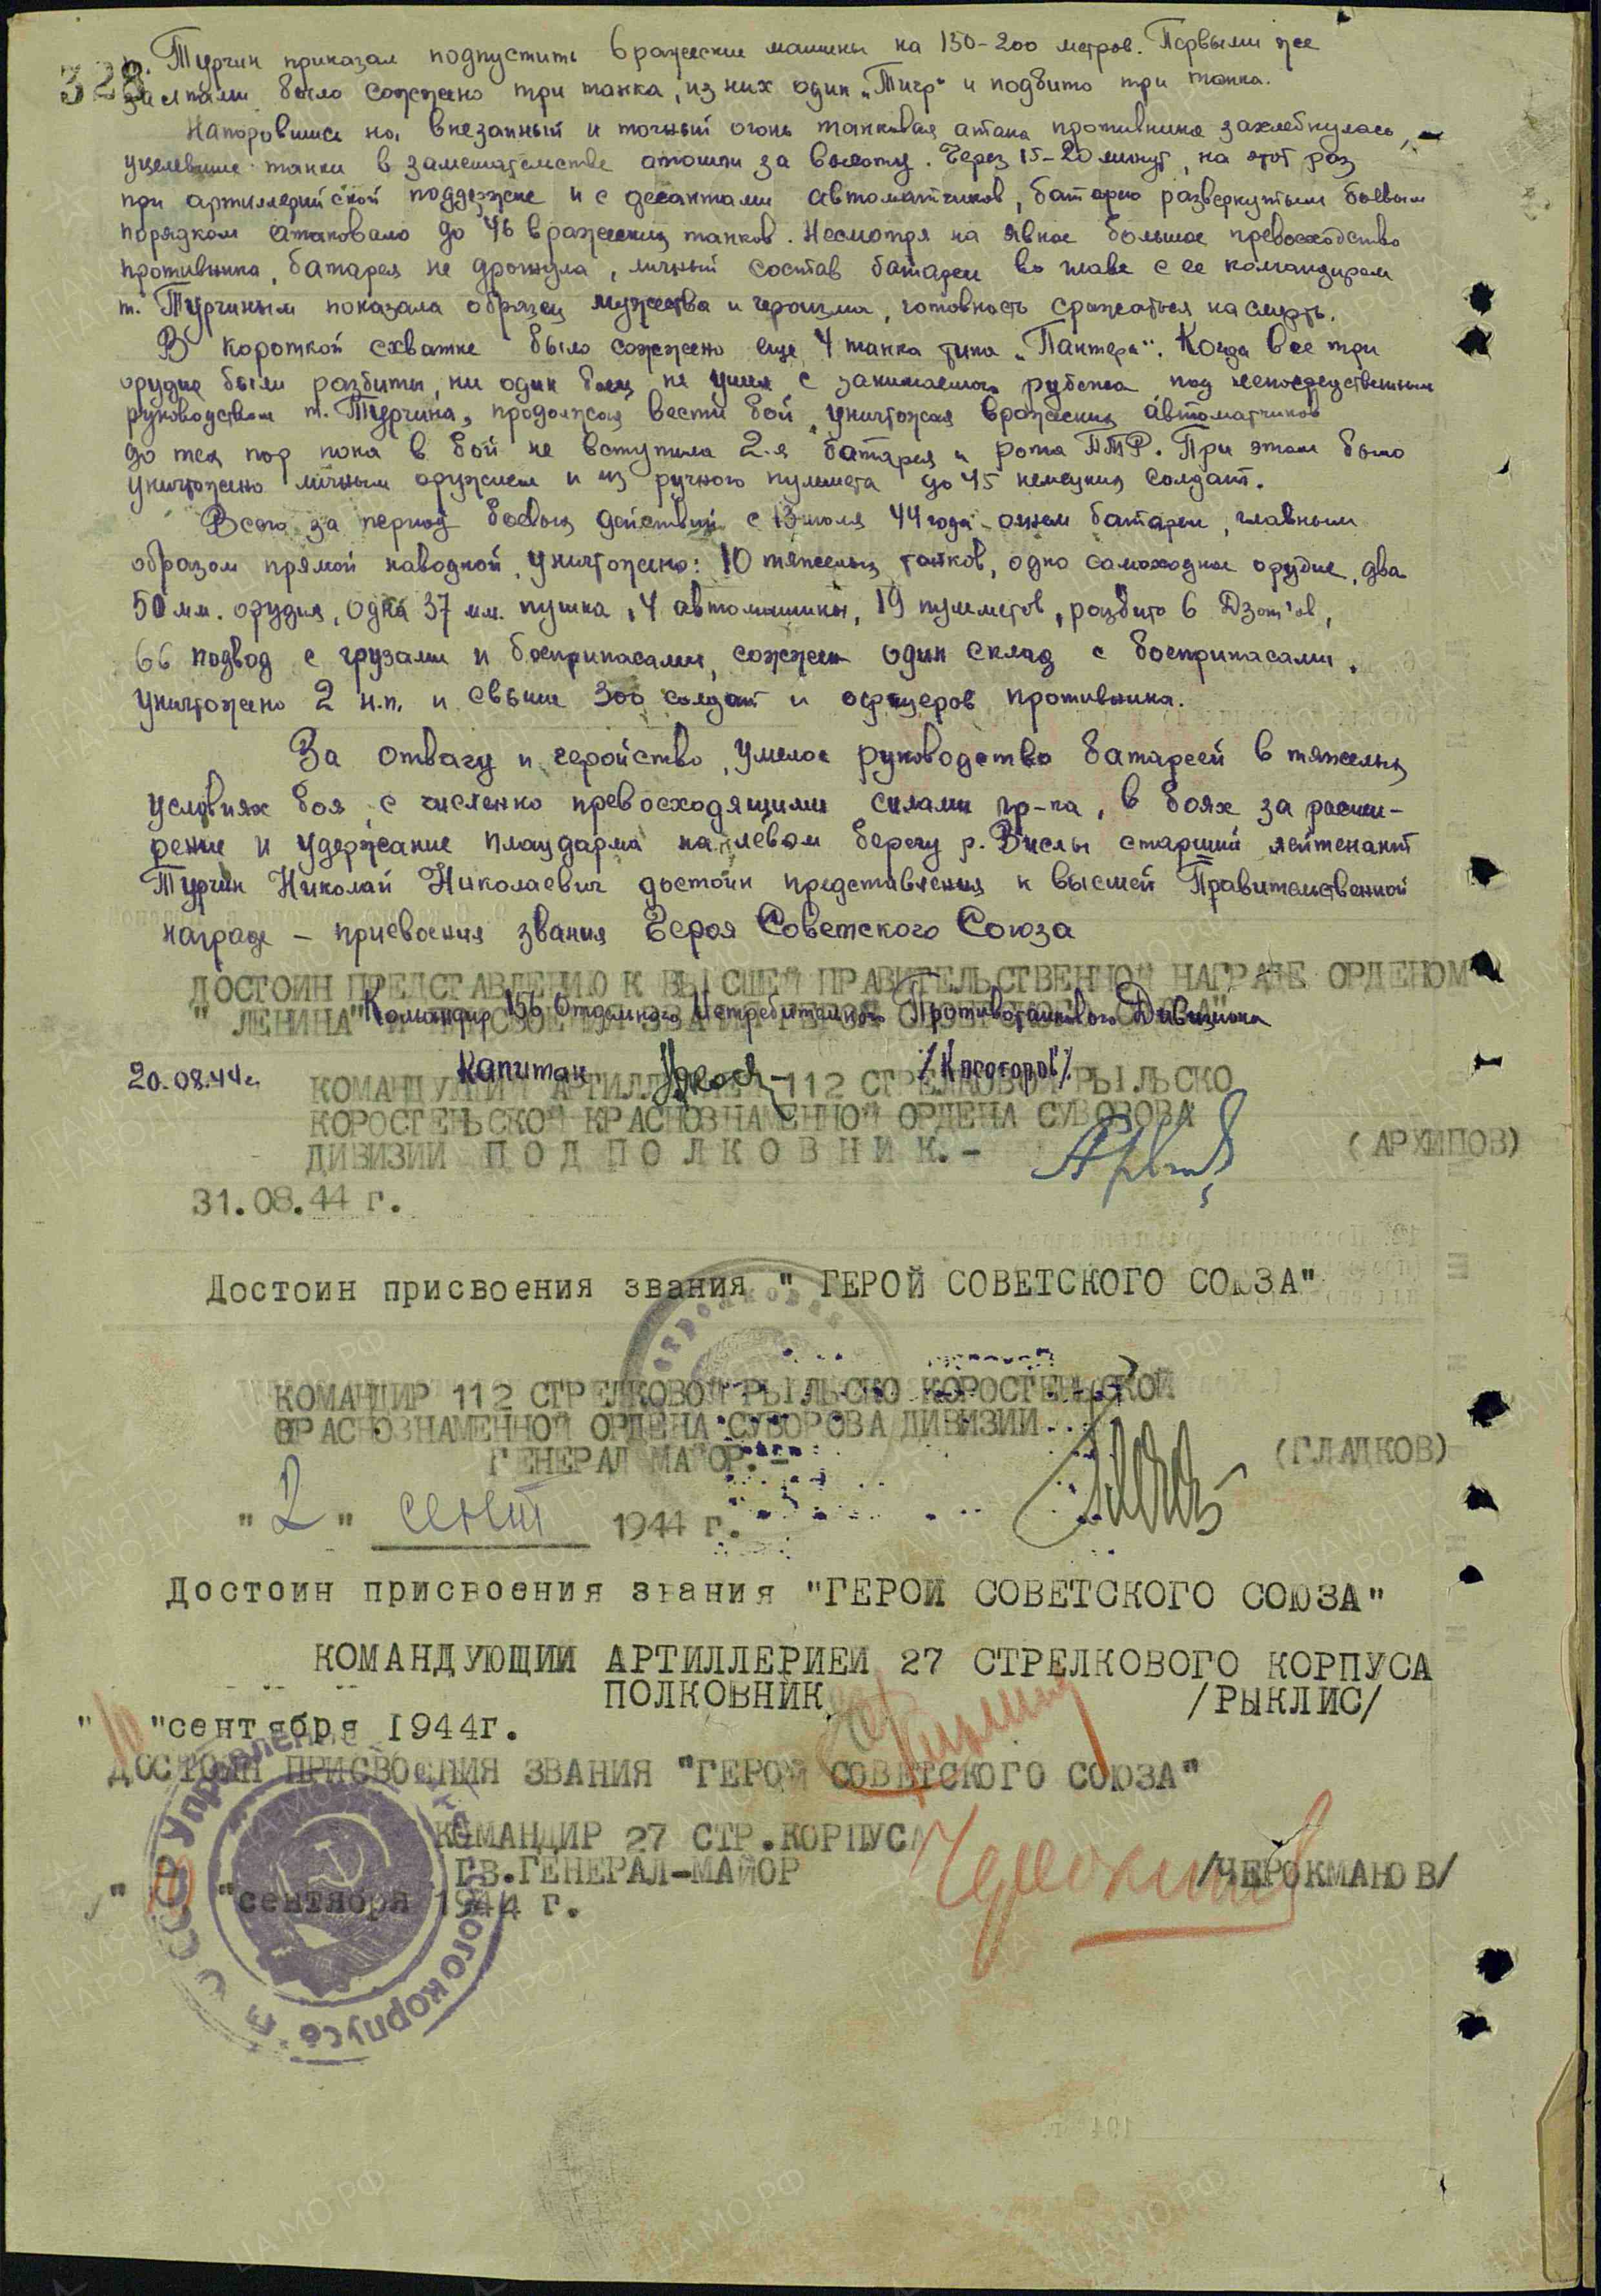 328
т. Турчин приказал подпустить вражеские машины на 150-200 метров. Первыми же
залпами было сожжено три танка, из них один „Тигр" и подбито три танка.
Напоровшись на внезапный и точный огонь танковая атака противника захлебнулась,
уцелевшие танки в замешательстве отошли за высоту. Через 15-20 минут, на этот раз
при артиллерийской поддержке и с десантами автоматчиков, батарею развернутым боевым
порядком атаковало до 46 вражеских танков. Несмотря на явное большое превосходство
противника, батарея не дрогнула, личный состав батареи во главе с ее командиром
т. Турчиным показала образец мужества и героизма, готовность сражаться на смерть.
В короткой схватке было сожжено еще 4 танка типа „Пантера". Когда все три
орудия были разбиты, ни один боец не ушел с занимаемого рубежа под непосредственным
руководством т. Турчина, продолжая вести бой, уничтожая вражеских автоматчиков
до тех пор пока в бой не вступила 2-я батарея и рота ПТР. При этом было
уничтожено личным оружием и из ручного пулемета до 45 немецких солдат.
Всего за период боевых действий с 13 июля 44 года огнем батареи, главным
образом прямой наводкой, уничтожено: 10 тяжелых танков, одно самоходное орудие, два
50 мм. орудия, одна 37 мм. пушка, 4 автомашины, 19 пулеметов, разбито 6 Дзот'ов,
66 подвод с грузами и боеприпасами, сожжен один склад с боеприпасами,
уничтожено 2 н.п. и свыше 300 солдат и офицеров противника.
За отвагу и геройство, умелое руководство батареей в тяжелых
условиях боя, с численно превосходящими силами пр-ка, в боях за расши-
рение и удержание плацдарма на левом берегу р. Вислы старший лейтенант
Турчин Николай Николаевич достоин представления к высшей Правительственной
награде - присвоения звания Героя Советского Союза
ДОСТОИН ПРЕДСТАВЛЕНИЮ К ВЫСШЕЙ ПРАВИТЕЛЬСТВЕННОЙ НАГРАДЕ ОРДЕНОМ
"ЛЕНИНА" И ПРИСВОЕНИЯ ЗВАНИЯ "ГЕРОЯ СОВЕТСКОГО СОЮЗА"
Командир 156 Отдельного Истребительного Противотанкового Дивизиона
20.08.44г. Капитан
КОМАНДУЮЩИЙ АРТИЛЛЕРИЕЙ 112 СТРЕЛКОВОЙ РЫЛЬСКО
КОРОСТЕНЬСКОЙ КРАСНОЗНАМЕННОЙ ОРДЕНА СУВОРОВА
ДИВИЗИИ ПОДПОЛКОВНИК.- (АРХИПОВ)
31.08.44 г.
Достоин присвоения звания " ГЕРОЙ СОВЕТСКОГО СОЮЗА"
КОМАНДИР 112 СТРЕЛКОВОЙ РЫЛЬСКО КОРОСТЕНЬСКОЙ
КРАСНОЗНАМЕННОЙ ОРДЕНА СУВОРОВА ДИВИЗИИ
ГЕНЕРАЛ МАЙОР.- (ГЛАДКОВ)
"2" сент 1944 г.
Достоин присвоения звания "ГЕРОЙ СОВЕТСКОГО СОЮЗА"
КОМАНДУЮЩИЙ АРТИЛЛЕРИЕЙ 27 СТРЕЛКОВОГО КОРПУСА
ПОЛКОВНИК /РЫКЛИС/
"10" сентября 1944г.
ДОСТОИН ПРИСВОЕНИЯ ЗВАНИЯ "ГЕРОЙ СОВЕТСКОГО СОЮЗА"
КОМАНДИР 27 СТР.КОРПУСА
ГВ.ГЕНЕРАЛ-МАЙОР /ЧЕРОКМАНОВ/
" "сентября 1944 г.